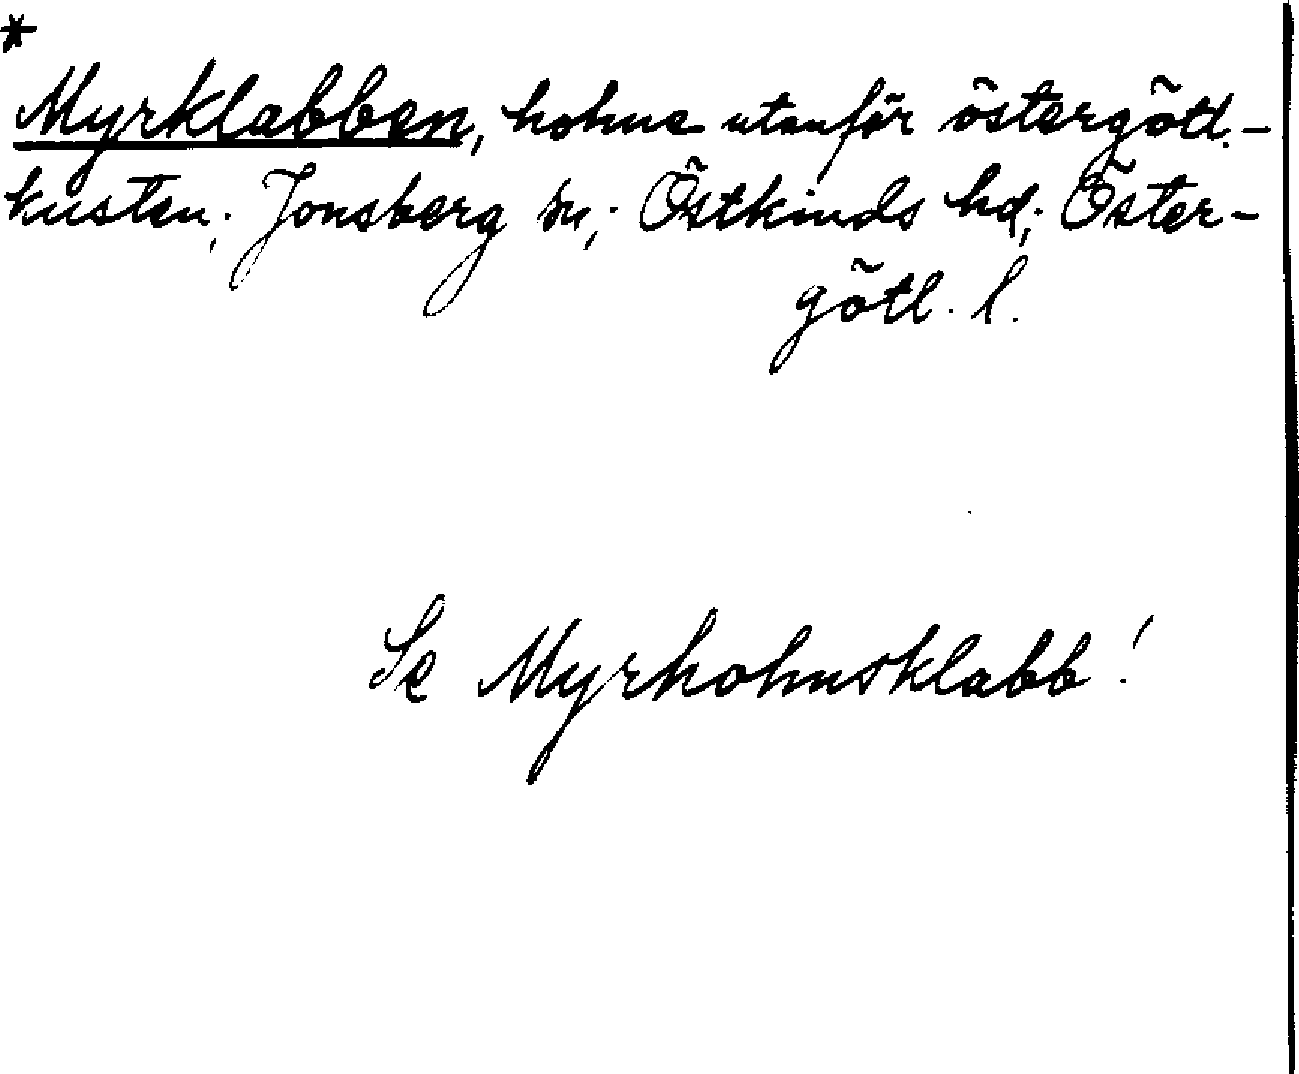 *
Myrklabben, holme utanför östergötl.-
kusten; Jonsberg sn; Östkinds hd; Öster-
götl. l.
Se Myrholmsklabb!